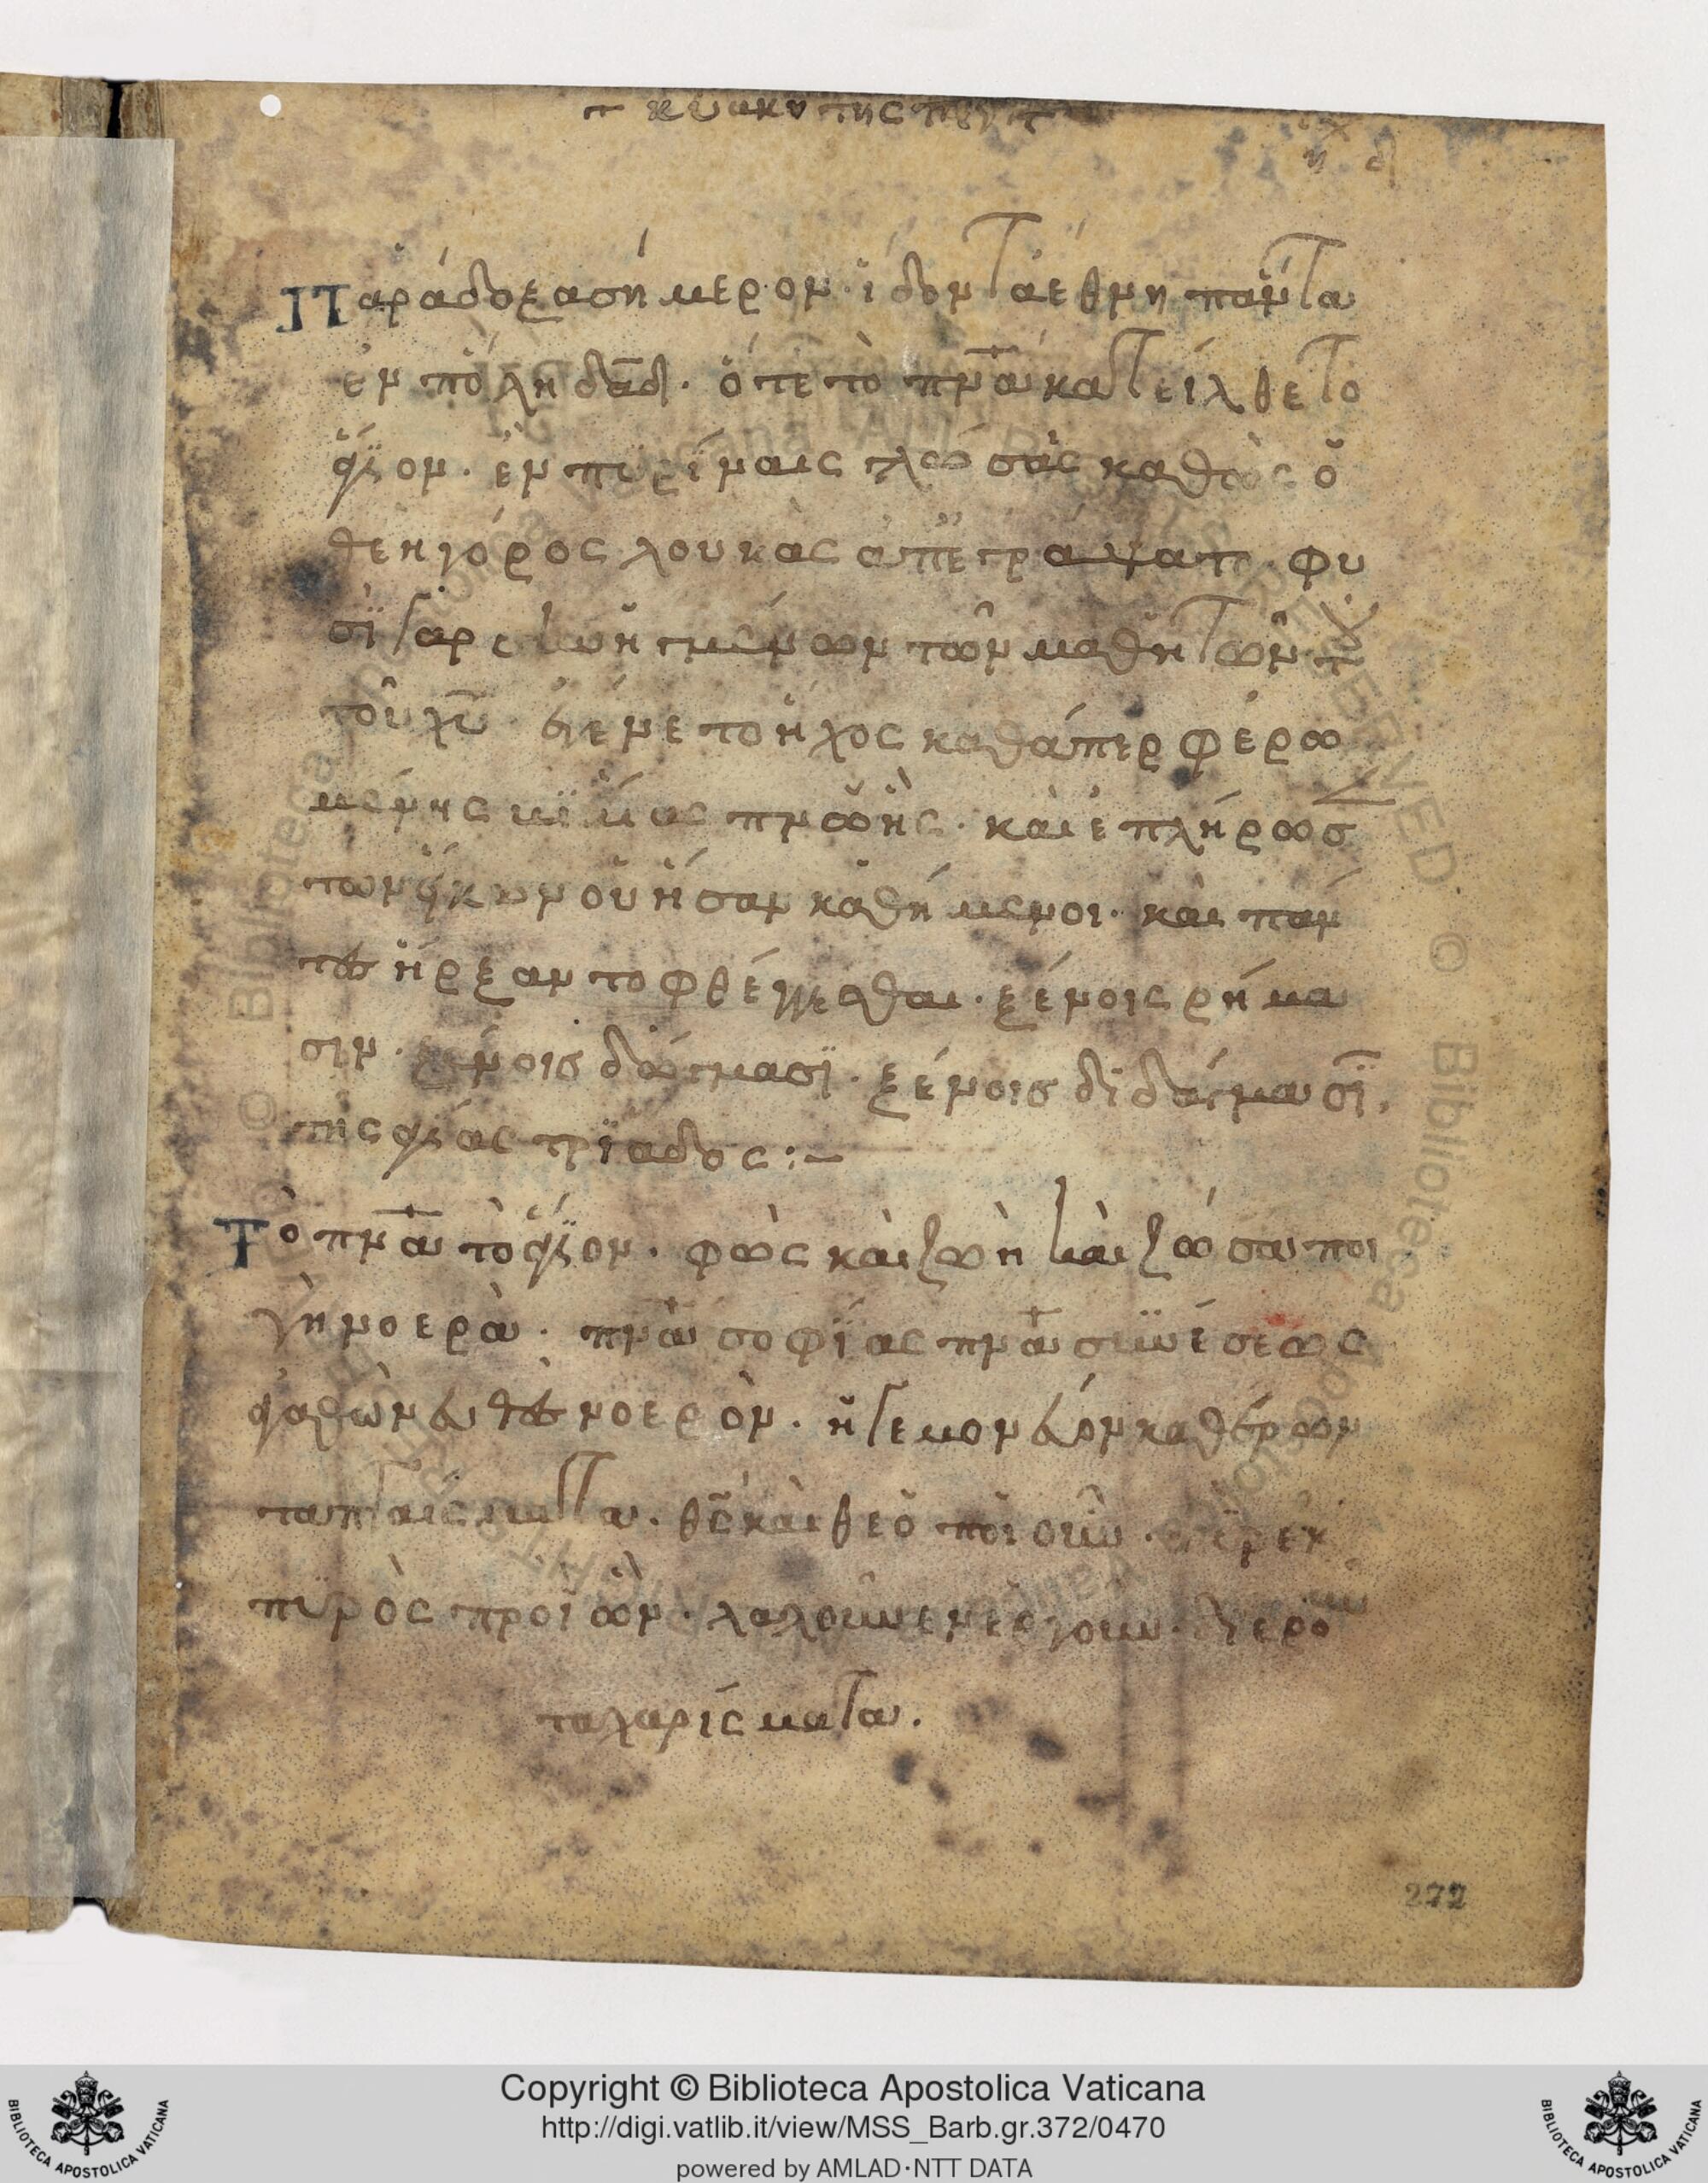 † κυριακη της πεντ
Παράδοξα σήμερον· ἴδον τὰ ἔθνη πάντα
ἐν πόλη δᾱδ· ὅτε τὸ πν̄α κατείλθε τὸ
ἅγϊον· ἐν πυρίναις γλώσσας καθὼς ὁ
θεηγόρος λουκὰς ἀπεγράψατο· φη
σῒ γὰρ συνηγμένων τῶν μαθητῶν
τοῦ χῡ· ἐγένετο ἦχος καθάπερ φερω
μένης βιαίας πνωῆς· καὶ ἐπλήρωσε
τὸν οἶκον οὗ ἦσαν καθήμενοι· καὶ πάν
τες ἤρξαντο φθέγγεσθαι· ξένοις ρήμα
σιν· ξένοις δόγμασϊ· ξένοις διδάγμασϊ,
τῆς ἁγίας τρϊαδος:–
Τὸ πν̄α τὸ ἅγϊον· φὼς καὶ ζωὴ καὶ ζῶσα πηγὴ
νοερὰ· πν̄α σοφΐας πν̄α συνέσεως
ἀγαθὸν εὐθὲς νοερὸν· ἡγεμονεῦον καθέρων
τὰ πταίσματα· θ̄ς καὶ θεο ποιοῦν· πῦρ ἐκ
πυρὸς προϊὼν· λαλοῦν ἐνεργοῦν· διεροῦν
τα χαρίσματα.
272
Copyright © Biblioteca Apostolica Vaticana
http://digi.vatlib.it/view/MSS_Barb.gr.372/0470
powered by AMLAD·NTT DATA
BIBLIOTECA APOSTOLICA VATICANA
BIBLIOTECA APOSTOLICA VATICANA